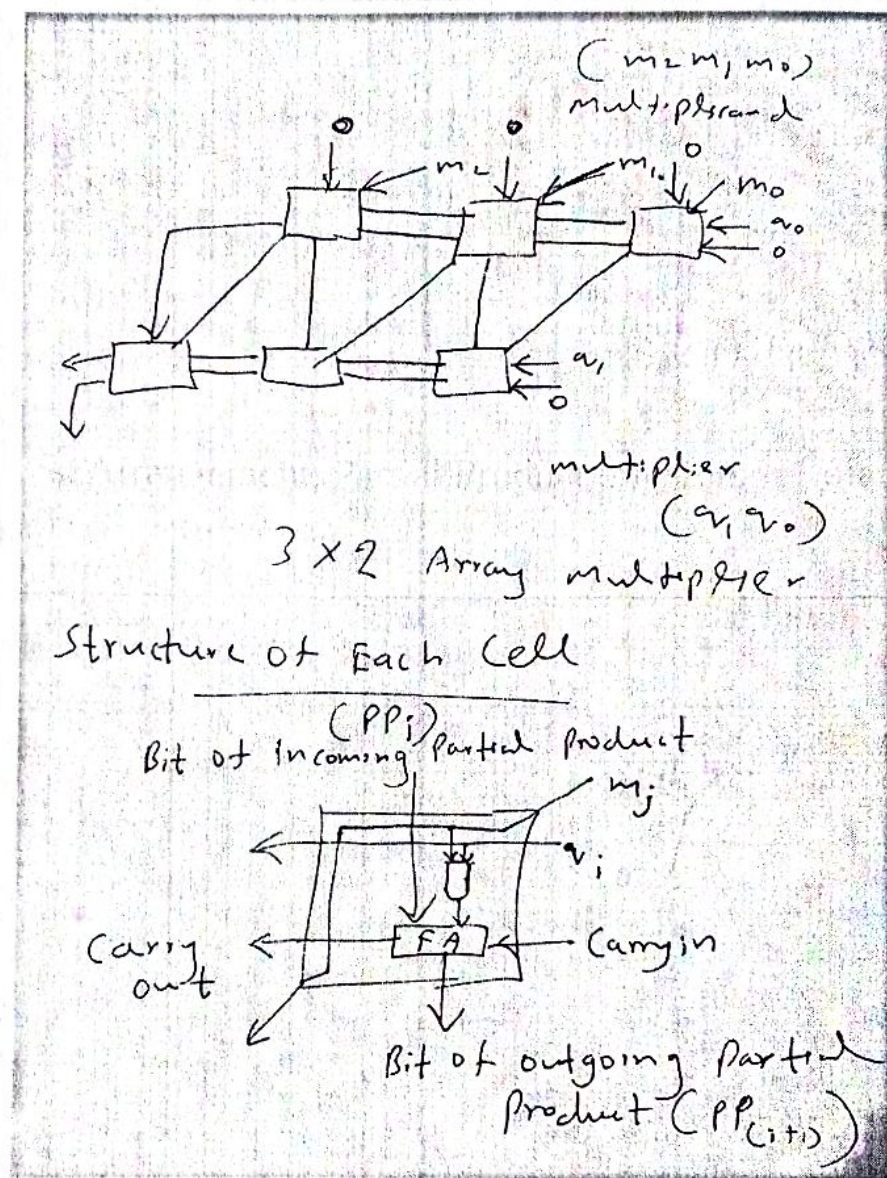 (m2 m1 m0)
multiplicand
0 0 0
m2 m1. m0
q0
0
q1
0
multiplier
(q1 q0)
3 × 2 Array multiplier
Structure of Each Cell
(PPi)
Bit of incoming Partial Product
mj
qi
FA
Carry out
Carry in
Bit of outgoing Partial
Product (PP(i+1))